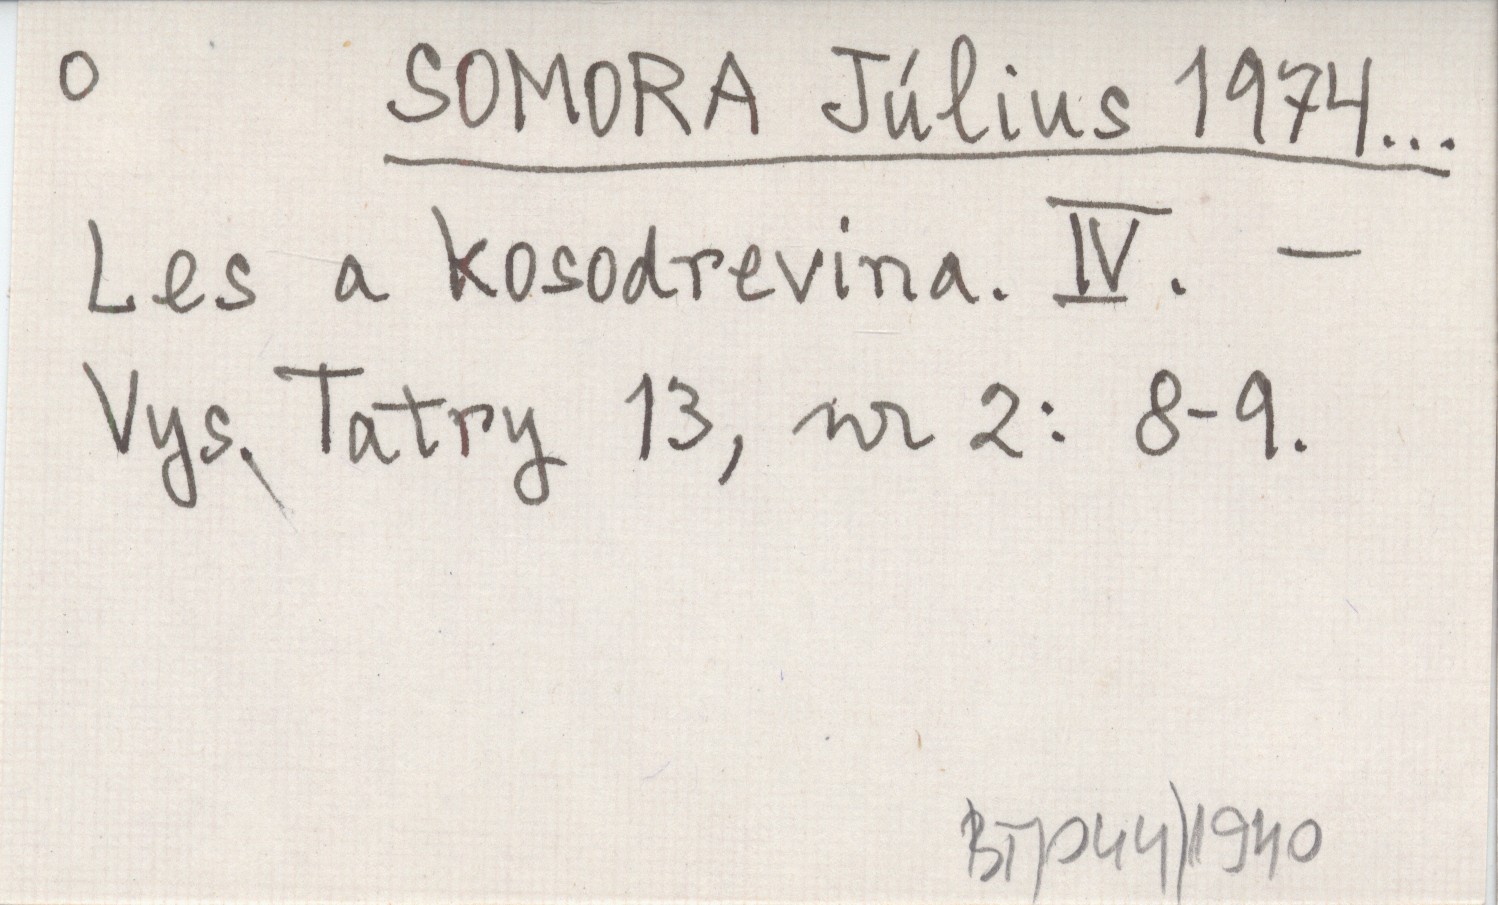 o SOMORA Július 1974...
Les a kosodrevina. IV. —
Vys. Tatry 13, nr 2: 8-9.
1940